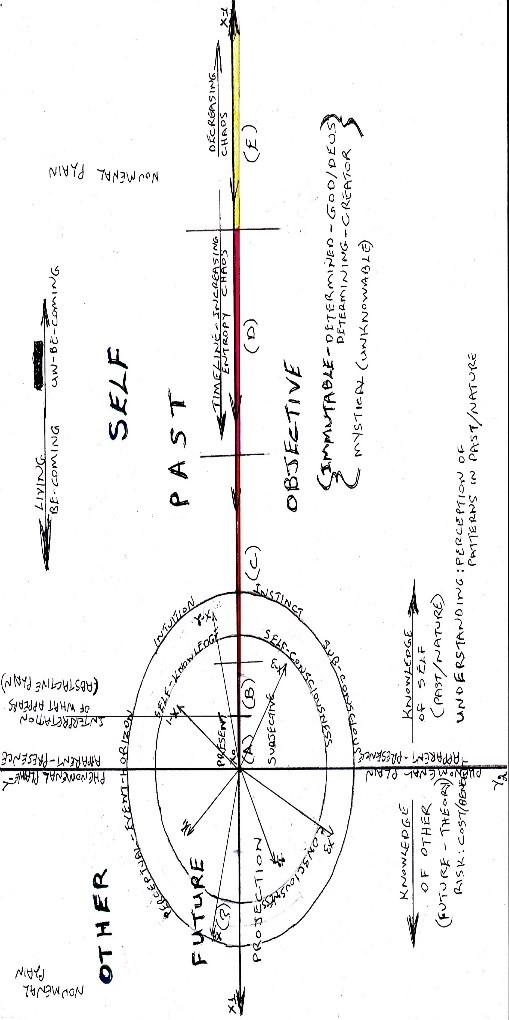 NOUMENAL PLAIN
OTHER
LIVING
BE-COMING
UN-BE-COMING
SELF
NOUMENAL PLAIN
FUTURE
PROJECTION
PAST
OBJECTIVE
PRESENT
SUBJECTIVE
PERCEPTUAL-EVENT-HORIZON
INTUITION
INSTINCT
SUB-CONSCIOUSNESS
SELF-KNOWLEDGE
SELF-CONSCIOUSNESS
CONSCIOUSNESS
INTERPRETATION
OF WHAT APPEARS
(ABSTRACTIVE PLAIN)
APPARENT-PRESENCE
PHENOMENAL PLAIN
APPARENT-PRESENCE
X1
X0
(A)
(B)
(B)
(C)
(D)
(E)
TIMELINE-INCREASING
ENTROPY CHAOS
DECREASING
CHAOS
{(IMMUTABLE-DETERMINED-GOD/DEUS)
DETERMINING-CREATOR
MYSTICAL (UNKNOWABLE)}
Y2
KNOWLEDGE
OF OTHER
(FUTURE-THEORY)
RISK:COST/BENEFIT
KNOWLEDGE
OF SELF
(PAST/NATURE)
UNDERSTANDING:PERCEPTION OF
PATTERNS IN PAST/NATURE